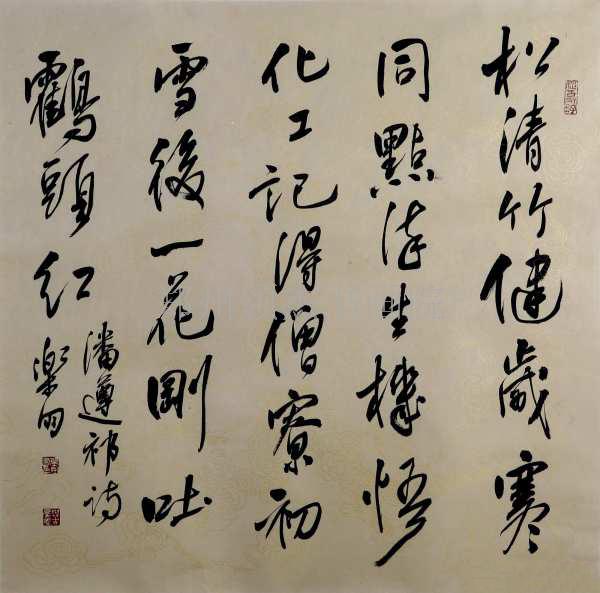 松清竹健歲寒
同點染生機悟
化工記得僧寮初
雪後一花剛吐
鶴頭紅
潘遵祁詩
樂明